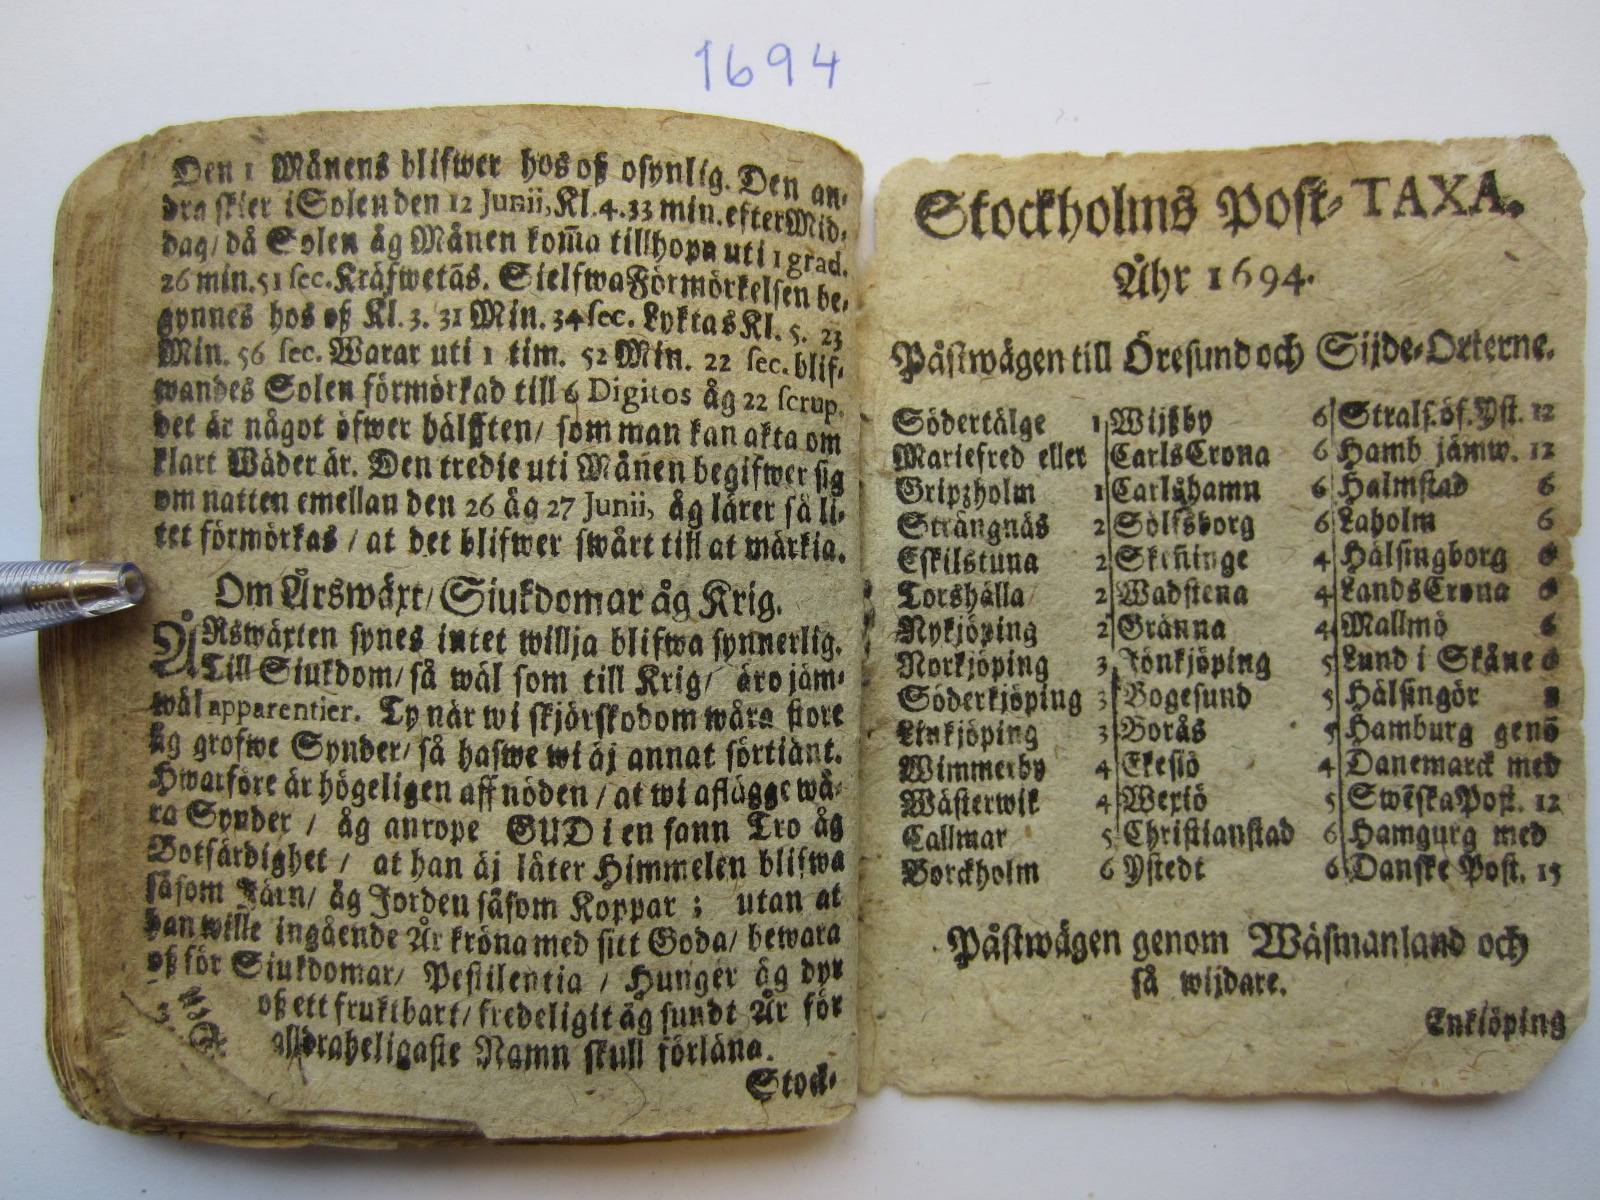 1694
Den 1 Månens blifwer hos oß osynlig. Den an-
dra skier i Solen den 12 Junii, Kl. 4. 33 min. efter Mid-
dag/ då Solen åg Månen kom̃a tillhopa uti 1 grad.
26 min. 51 sec. Kräfwetãs. Sielfwa Förmörkelsen be-
gynnes hos oß Kl. 3. 31 Min. 34 sec. Lyktas Kl. 5. 23
Min. 56 sec. Warar uti 1 tim. 52 Min. 22 sec. blif-
wandes Solen förmörkad till 6 Digitos åg 22 scrup.
det är något öfwer hälfften/ som man kan akta om
klart Wäder är. Den tredie uti Månen begifwer sig
om natten emellan den 26 åg 27 Junii, åg lärer så li-
tet förmörkas / at det blifwer swårt till at märkia.
Om Årswäxt/ Siukdomar åg Krig.
ÅRswäxten synes intet willja blifwa synnerlig.
Till Siukdom/ så wäl som till Krig/ äro jäm-
wäl apparentier. Ty när wi skjärskodom wåra store
åg grofwe Synder/ så hafwe wi äj annat förtiänt.
Hwarföre är högeligen aff nöden / at wi aflägge wå-
ra Synder / åg anrope GUD i en sann Tro åg
Botfärdighet / at han äj låter Himmelen blifwa
såsom Järn/ åg Jorden såsom Koppar ; utan at
han wille ingående År kröna med sitt Goda/ bewara
oß för Siukdomar/ Pestilentia / Hunger åg dyr
3. oß ett fruktbart/ fredeligit åg sundt År för
alldraheligaste Namn skull förläna.
Stock-
Stockholms Post-TAXA.
Åhr 1694.
Påstwägen till Öresund och Sijde-Orterne.
Södertälge 1 Wijßby 6 Stralſ. öf. Yst. 12
Mariefred eller CarlsCrona 6 Hamb jämw. 12
Gripzholm 1 Carlshamn 6 Halmstad 6
Strängnäs 2 Sölfsborg 6 Laholm 6
Eskilstuna 2 Skeninge 4 Hälsingborg 6
Torshälla 2 Wadstena 4 LandsCrona 6
Nykjöping 2 Gränna 4 Mallmö 6
Norkjöping 3 Jönkjöping 5 Lund i Skåne 6
Söderkjöping 3 Bogesund 5 Hälsingör 8
Linkjöping 3 Borås 5 Hamburg genö
Wimmerby 4 Ekesiö 4 Danemarck med
Wästerwik 4 Wexiö 5 Swẽska Post. 12
Callmar 5 Christianstad 6 Hamgurg med
Borckholm 6 Ystedt 6 Danske Post. 15
Påstwägen genom Wäsmanland och
så wijdare.
Enkiöping